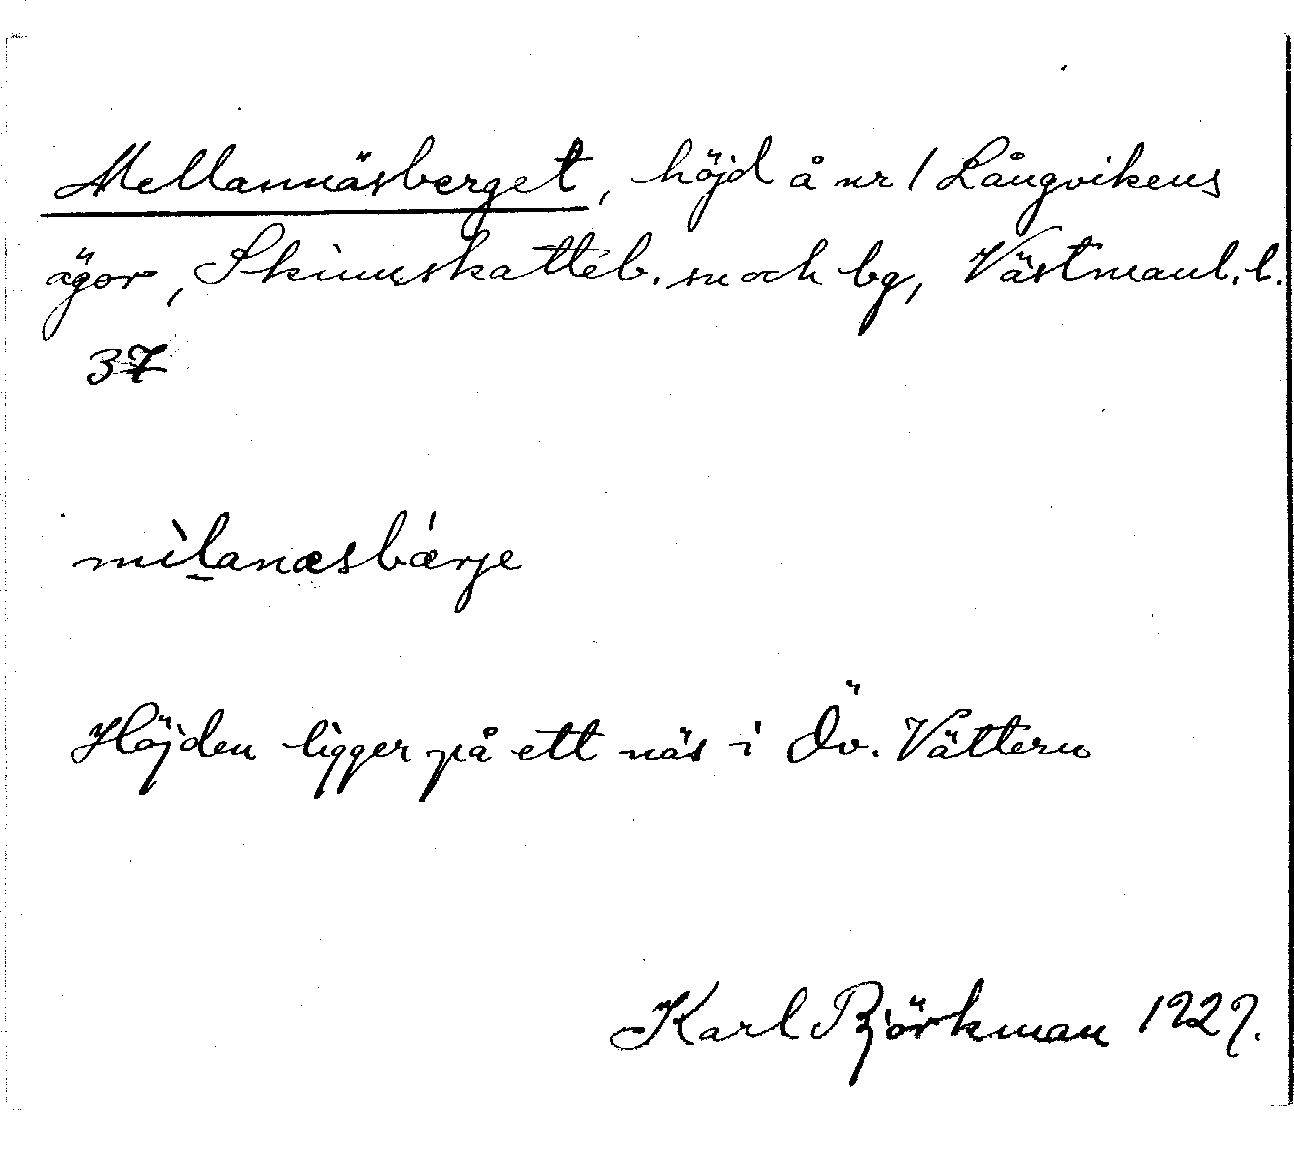 Mellannäsberget, höjd å nr 1 Långvikens
ägor, Skinnskatteb. sn och bg, Västmanl. l.
37
mìlanæsbǽrje
Höjden ligger på ett näs i Öv. Vättern
Karl Björkman 1929.